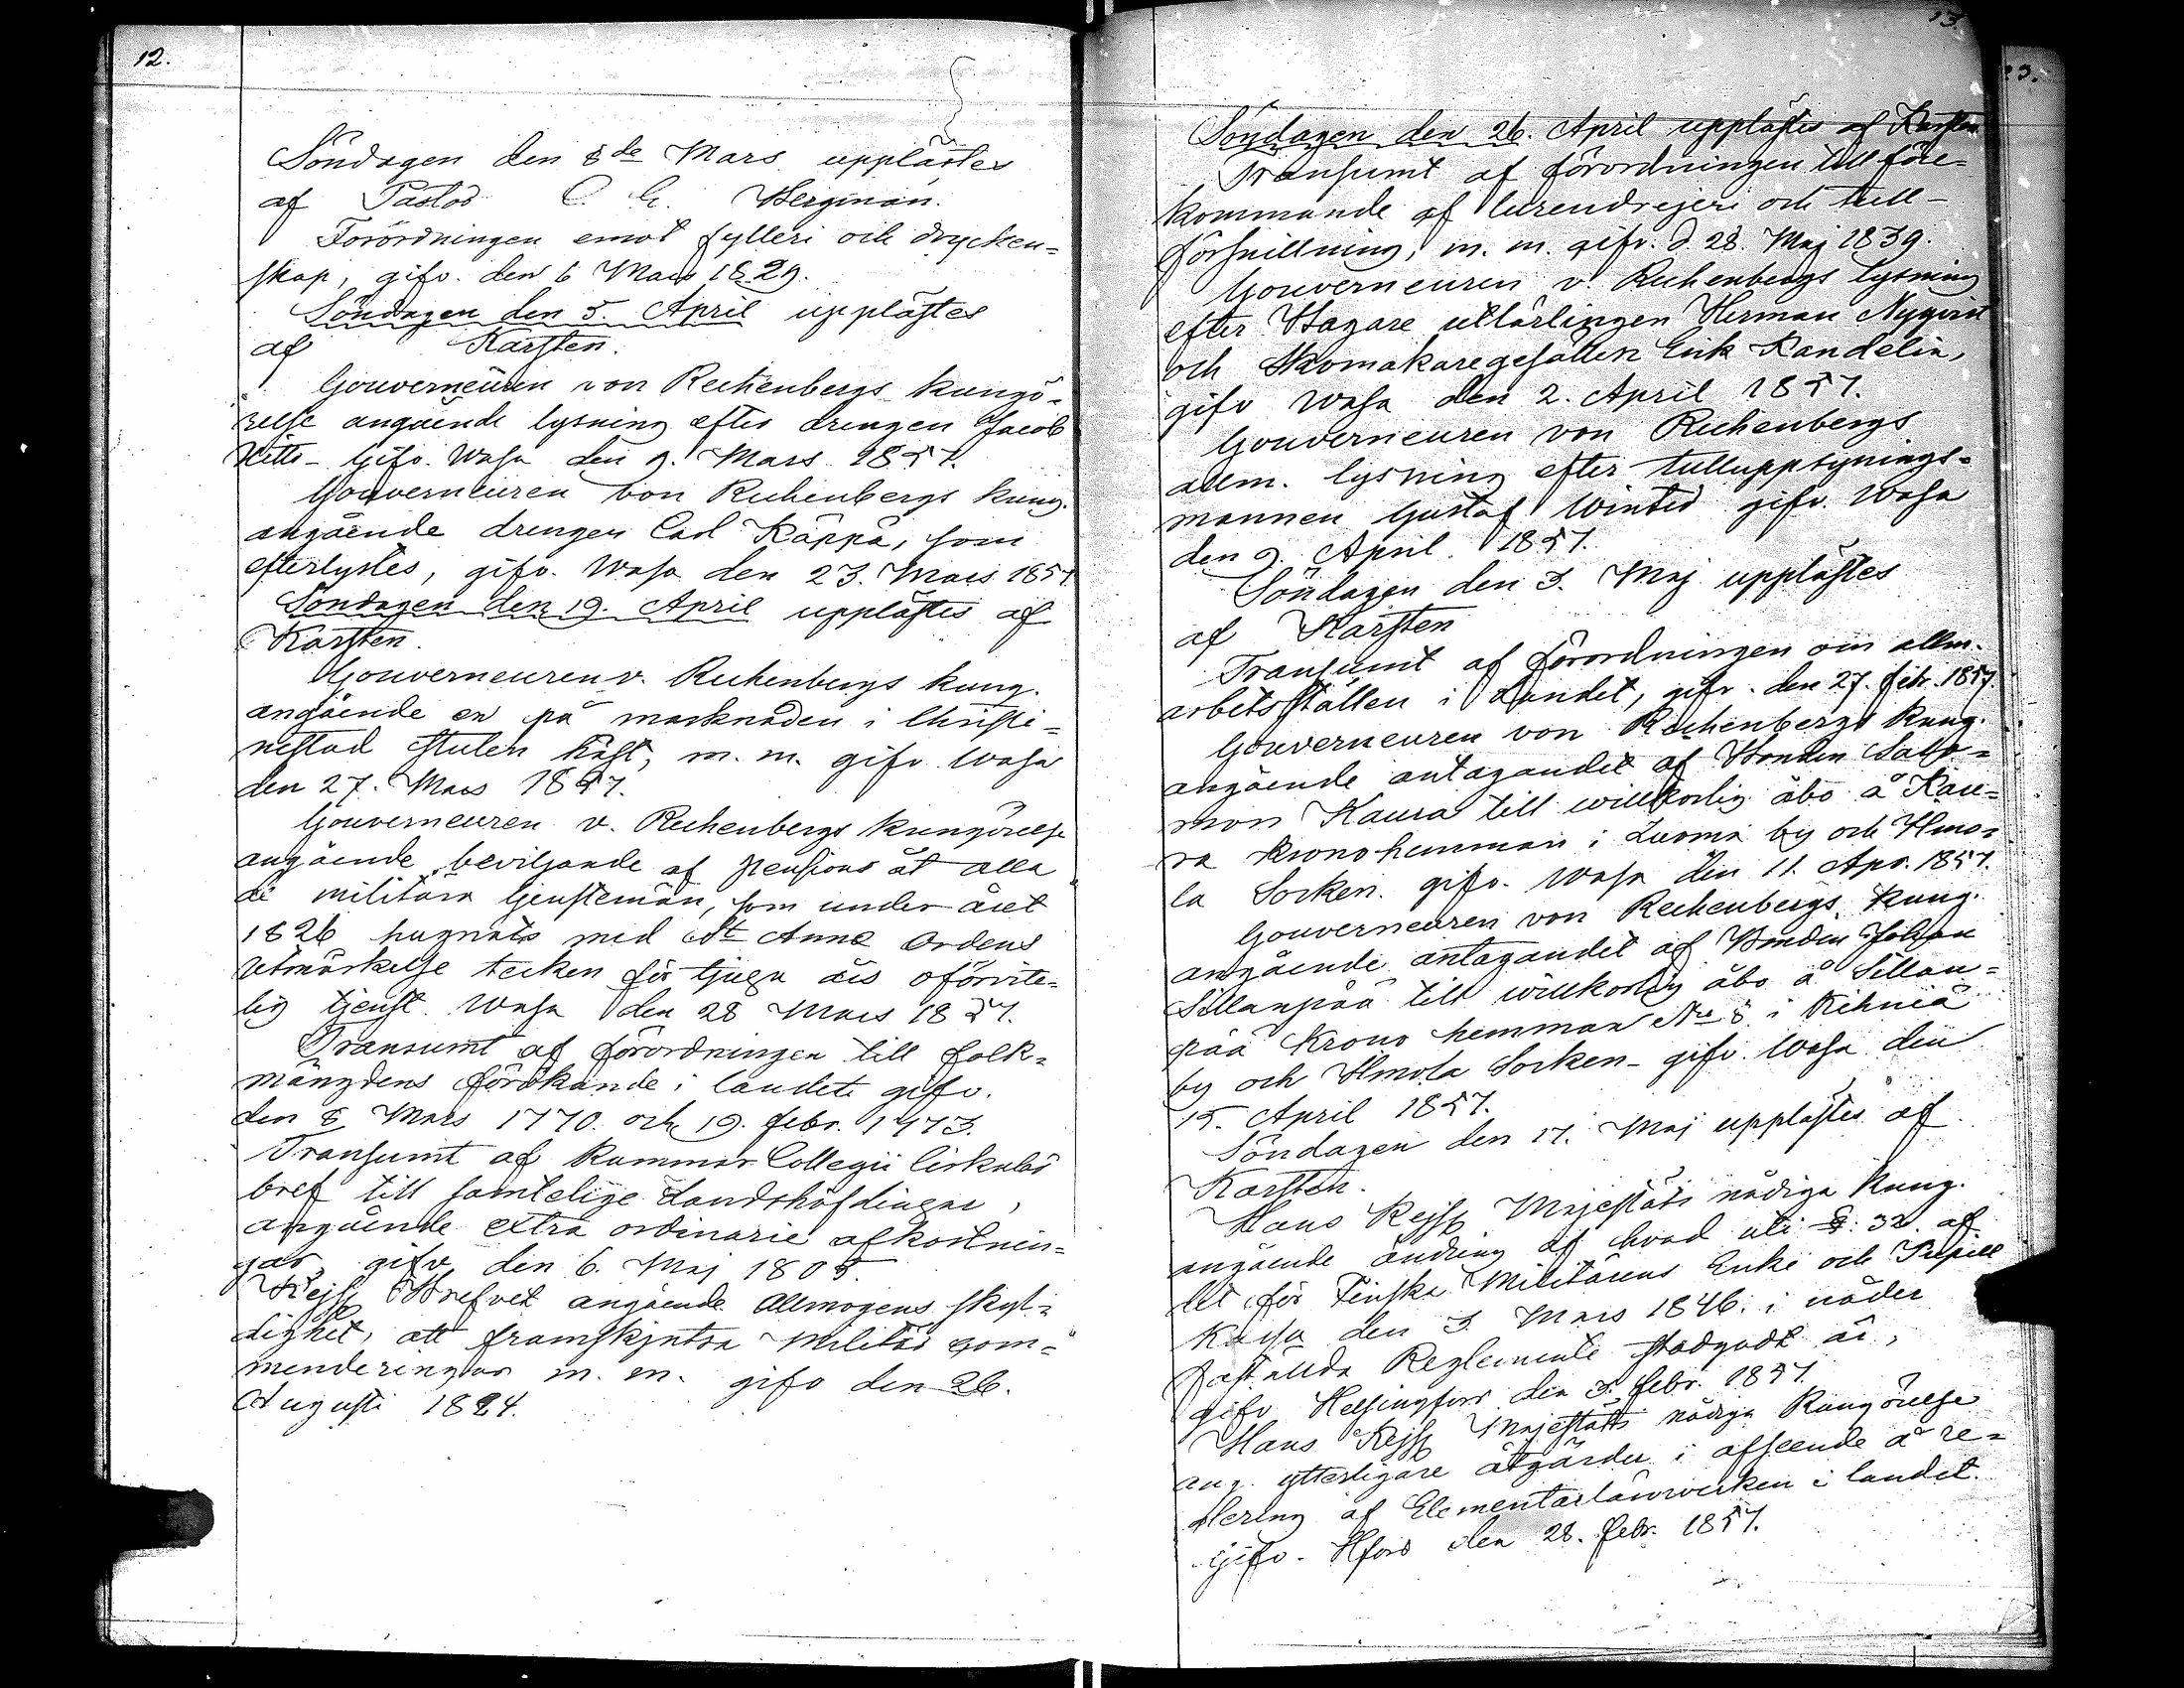 12.
Söndagen den 8de Mars upplästes
af Pastor C. G. Bergman.
Förordningen emot fylleri och drycken=
skap, gifv. den 6 Mars 1829.
Söndagen den 5. April upplästes
af Karsten.
Gouverneuren von Rechenbergs kungö=
relse angående lysning efter drengen Jacob
Kitts - Gifv. Wasa den 9. Mars 1857.
Gouverneuren von Rechenbergs kung.
angående drengen Carl Käppä, som
efterlystes, gifv. Wasa den 23. Mars 1857
Söndagen den 19. April upplästes af
Karsten.
Gouverneuren v. Rechenbergs kung.
angående en på marknaden i Christi=
nestad stulen häst, m. m. gifv Wasa
den 27. Mars 1857.
Gouverneuren v. Rechenbergs kungörelse
angående beviljande af pensions åt alla
de militära tjenstemän, som under året
1826 hugnats med St Anne Ordens
Utmärkelse tecken för tjugu års oförvite=
lig tjenst. Wasa den 28 Mars 1857.
Transumt af förordningen till folk=
mängdens förökande i landet gifv.
den 8 Mars 1770. och 19. febr. 1773.
Transumt af Kammar Collegii Cirkulär
bref till samtelige Landshöfdingar,
angående extra ordinarie afkortnin=
gar, gifv den 6. Maj 1805.
Kejs. Brefvet angående Allmogens skyl=
dighet, att framskjutsa Militär com=
menderingar m. m. gifv den 26.
Augusti 1824.
13.
23.
Söndagen den 26. April upplästes af Karsten
Transumt af förordningen till före=
kommande af lurendrejeri och tull-
försnillning, m. m. gifv. d. 28. Maj 1839.
Gouverneuren v. Rechenbergs lysning
efter Bagare utlärlingen Herman Nyqvist
och Skomakaregesällen Erik Kandelin,
gifv Wasa den 2. April 1857.
Gouverneuren von Rechenbergs
allm. lysning efter tulluppsynings=
mannen Gustaf Winter gifv. Wasa
den 9. April. 1857.
Söndagen den 3. Maj upplästes
af Karsten
Transumt af förordningen om allm.
arbetsställen i Landet, gifv. den 27. febr. 1857.
Gouverneuren von Rechenbergs kung.
angående antagandet af Bonden Salo=
mon Kaura till willkorlig åbo å Kau=
ra kronohemman i Luoma by och Ilmo=
la Socken. gifv. Wasa den 11. Apr. 1857.
Gouverneuren von Rechenbergs kung.
angående antagandet af Bonden Johan
Sillanpää till willkorlig åbo å Sillan=
pää Krono hemman No 8 i Kihniä
by och Ilmola Socken - gifv. Wasa den
15. April 1857.
Söndagen den 17. Maj upplästes af
Karsten.
Hans Kejs. Majestäts nådiga Kung.
angående ändring af hvad uti §. 32. af
det för Finska Militärens Enke och Pupill
Kassa den 3 Mars 1846. i nåder
fastställda Reglemente stadgadt är,
gifv Helsingfors den 3. febr. 1857.
Hans Kejs. Majestäts nådiga Kungörelse
ang. ytterligare åtgärder i afseende å re=
glering af Elementarläroverken i landet.
Gifv. Hfors den 28. febr. 1857.